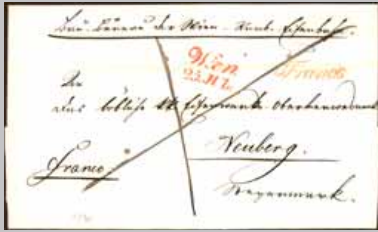 Bau-Bureau der Wien-Raab. Eisenbahn.
Wien
Franco
An
das löbliche kk Eisenwerks Oberverwesamt
Neuberg.
Franco
Steyermark.